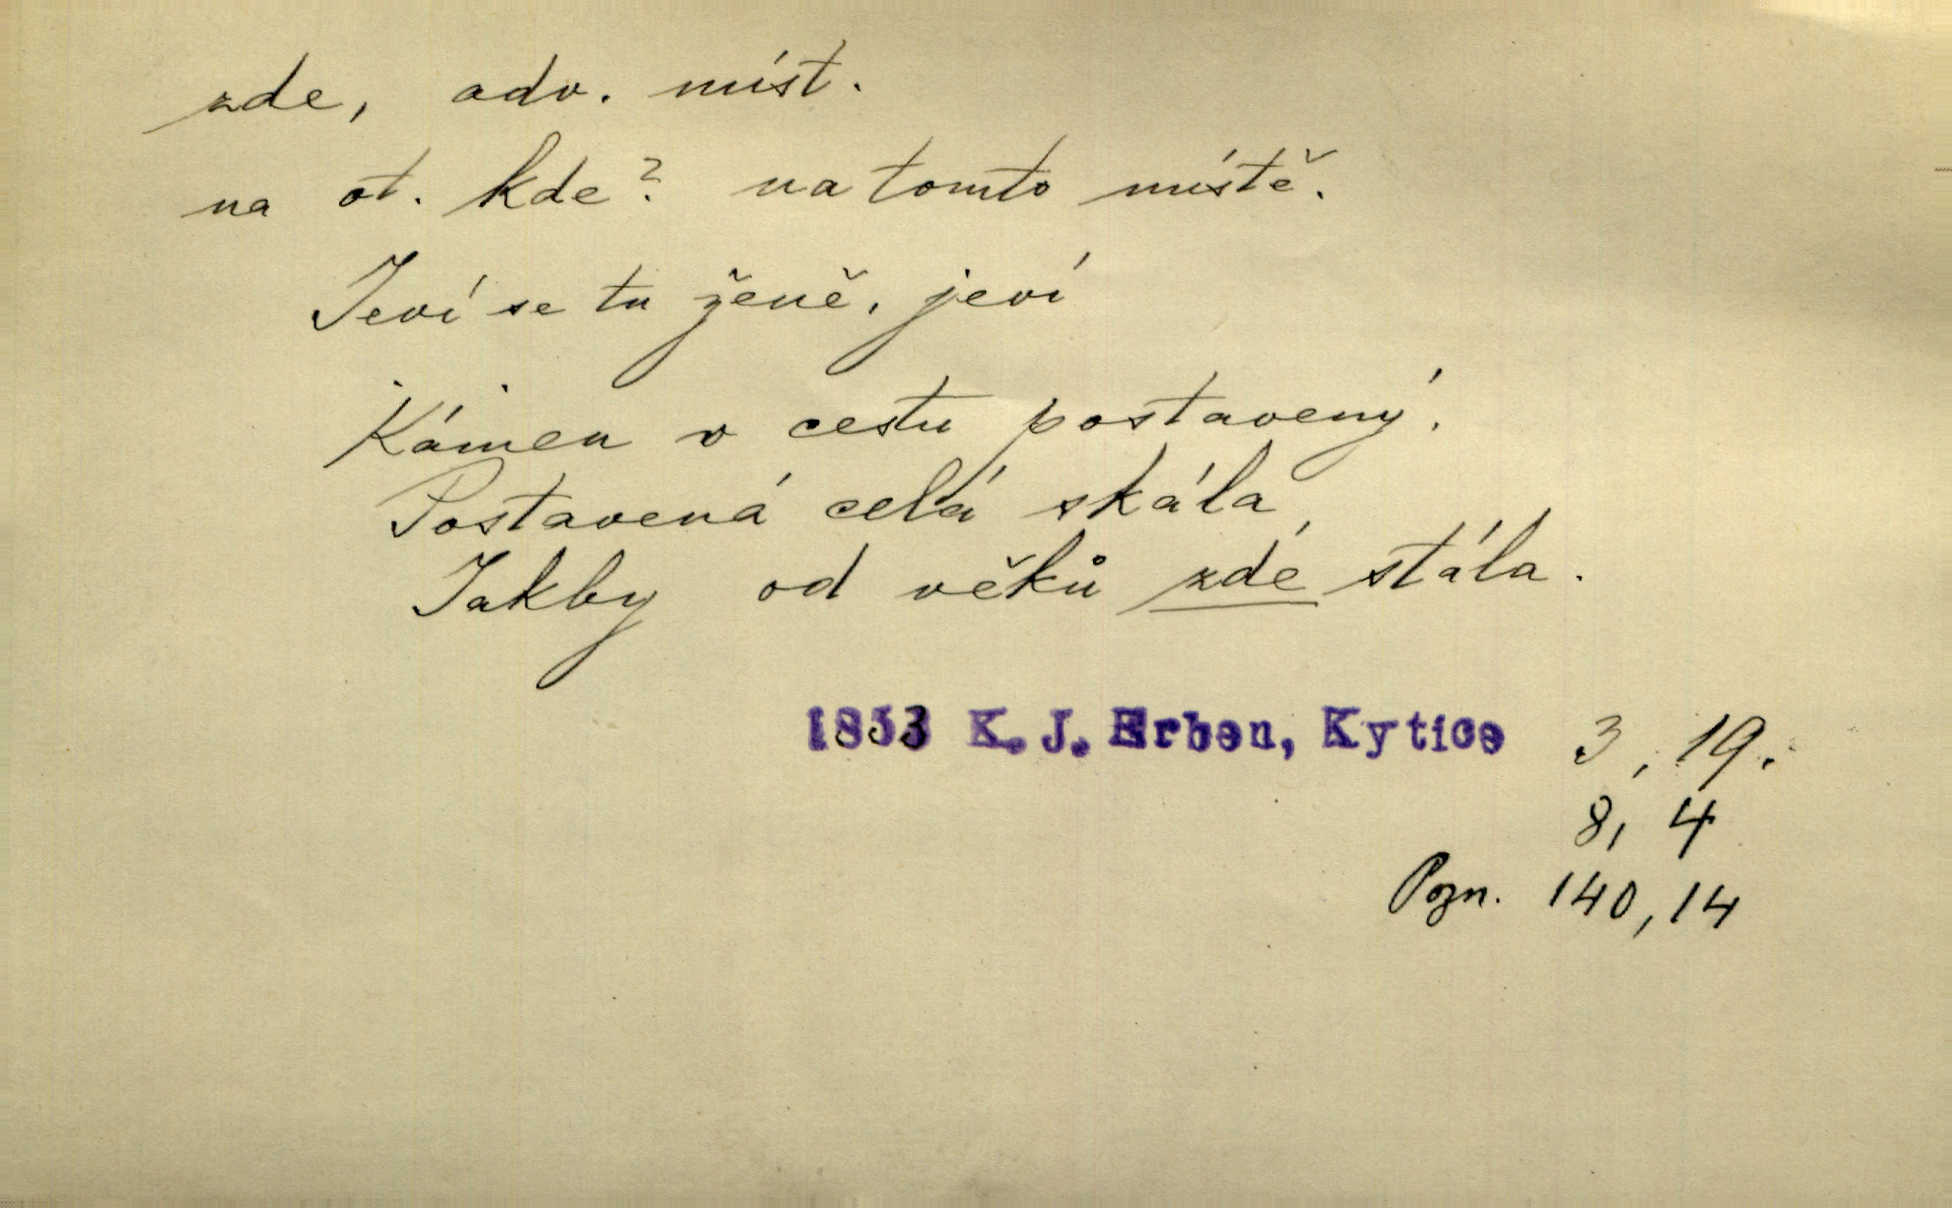 zde, adv. míst.
na ot. kde? na tomto místě.
Jeví se tu ženě, jeví
Kámen v cestu postavený.
Postavená celá skála,
Jakby od věků zde stála.
1853 K. J. Erben, Kytice 3, 19.
8, 4
Pozn. 140, 14